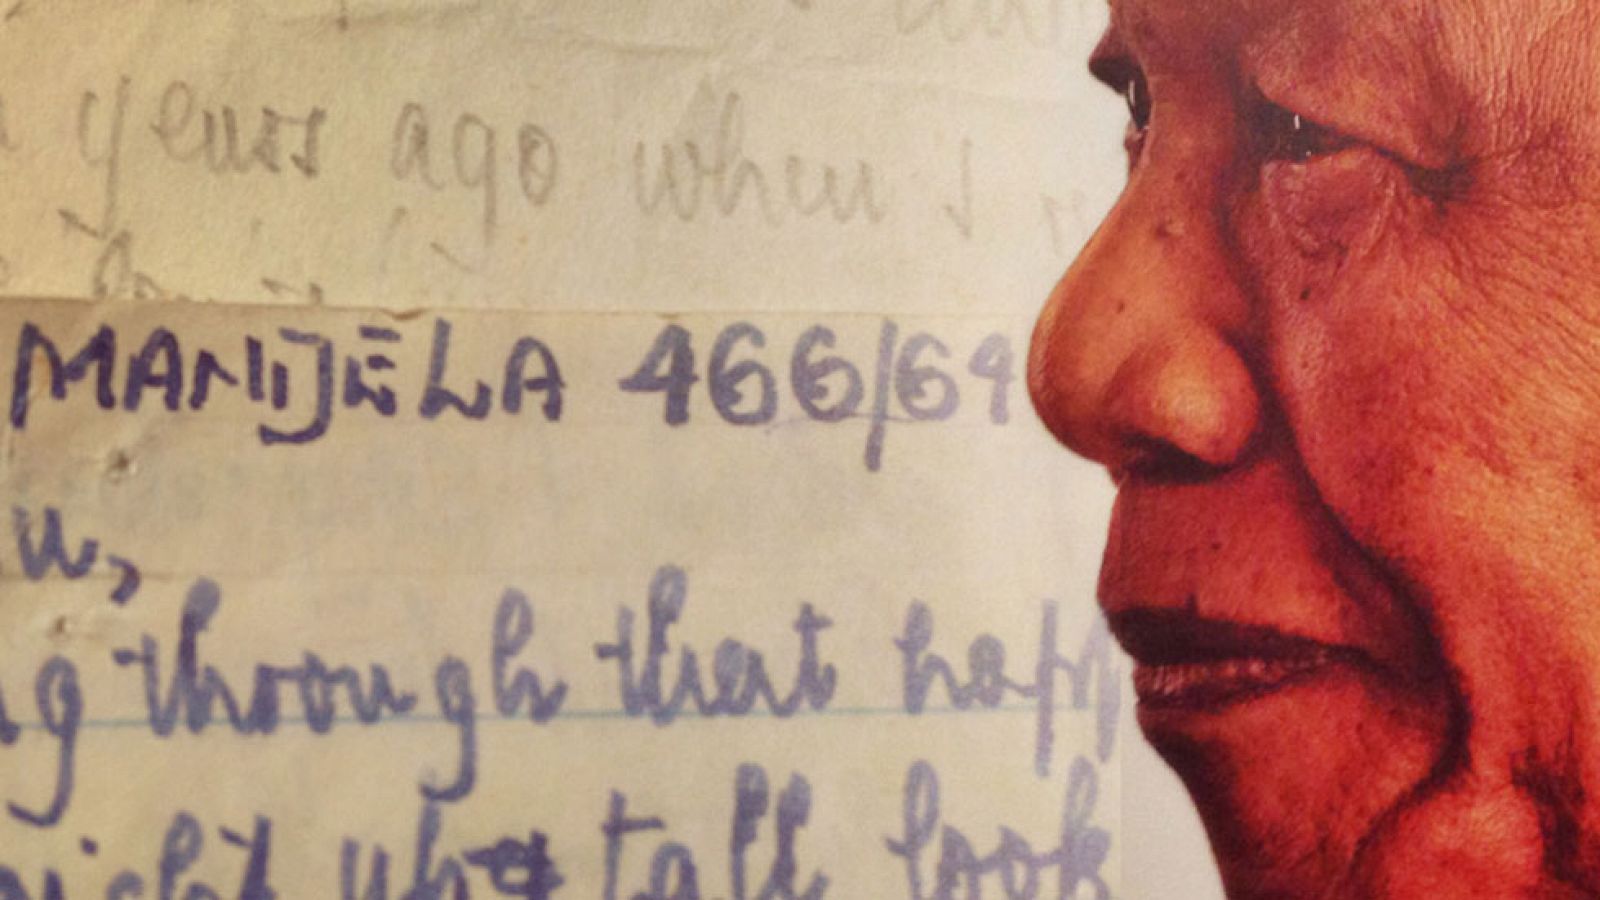 years ago when I
MANDELA 466/64
u,
g through that happ
ight tall look